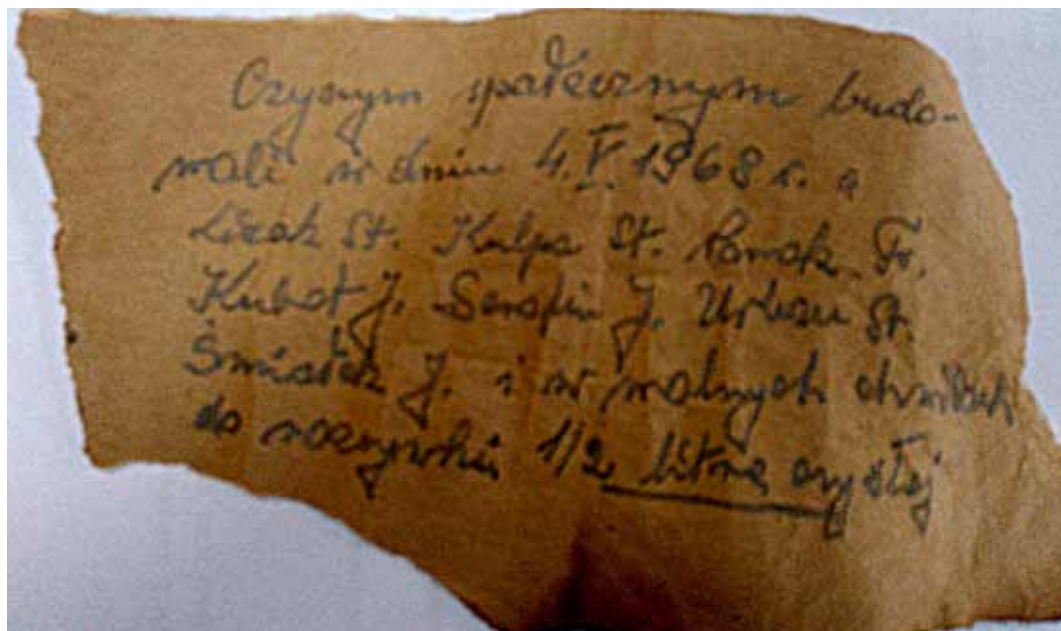 Czynym społecznym budo-
wali w dniu 4.V.1968 r. a
Lizak St. Kulpa St. Nowak Fr.
Kubat J. Serafin J. Urban St.
Świątek J. i w wolnych chwilach
do rozrywki 1/2 litra czystej